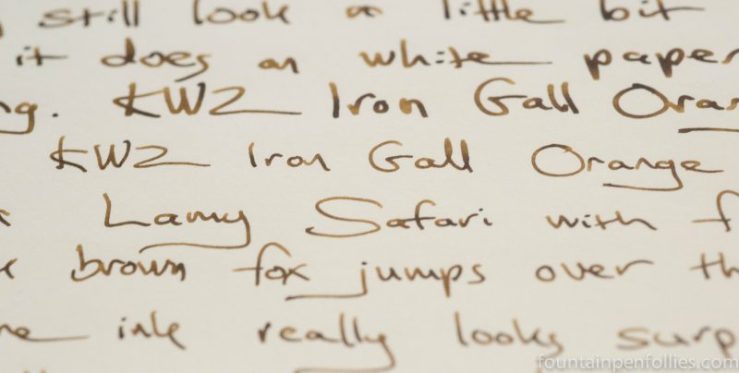 still look a little bit
it does on white paper
ng. KWZ Iron Gall Oran
KWZ Iron Gall Orange
Lamy Safari with f
brown fox jumps over th
ne ink really looks surp
fountainpenfollies.com